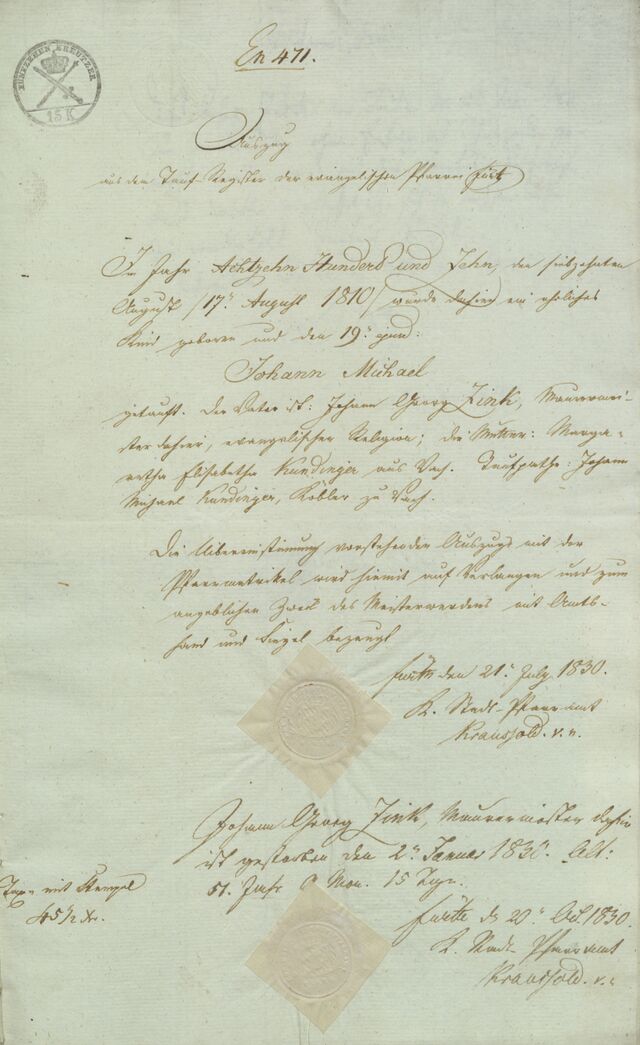 FÜNFZEHEN KREUTZER
15 K
En 471.
Auszug
aus dem Tauf-Register der evangelischen Pfarrei Fürth
Im Jahr Achtzehn Hundert und Zehn, den siebzehnten
August /17n August 1810/ wurde dahier ein eheliches
Kind geboren und den 19n ejusd:
Johann Michael
getauft. Der Vater ist: Johann Georg Zink, Maurermei-
ster dahier, evangelischer Religion; die Mutter: Marga-
retha Elisabetha Kundinger aus Vach. Taufpathe: Johann
Michael Kundinger, Köbler zu Vach.
Die Uebereinstimmung vorstehenden Auszugs mit der
Pfarrmatrikel wird hiemit auf Verlangen und zum
angeblichen Zweck des Meisterwerdens mit Amts-
hand und Siegel bezeugt
Fürth den 21n July 1830.
K. Stadt-Pfarramt
Kraussold. v. n.
Johann Georg Zink, Maurermeister dahier
ist gestorben den 2n Januar 1830. Alt:
51. Jahr Mon. 15 Tage.
Taxe mit Stempel
45 1/2 Xr.
Fürth d 20n Oct. 1830.
K. Stadt Pfarramt
Kraussold. v. n.